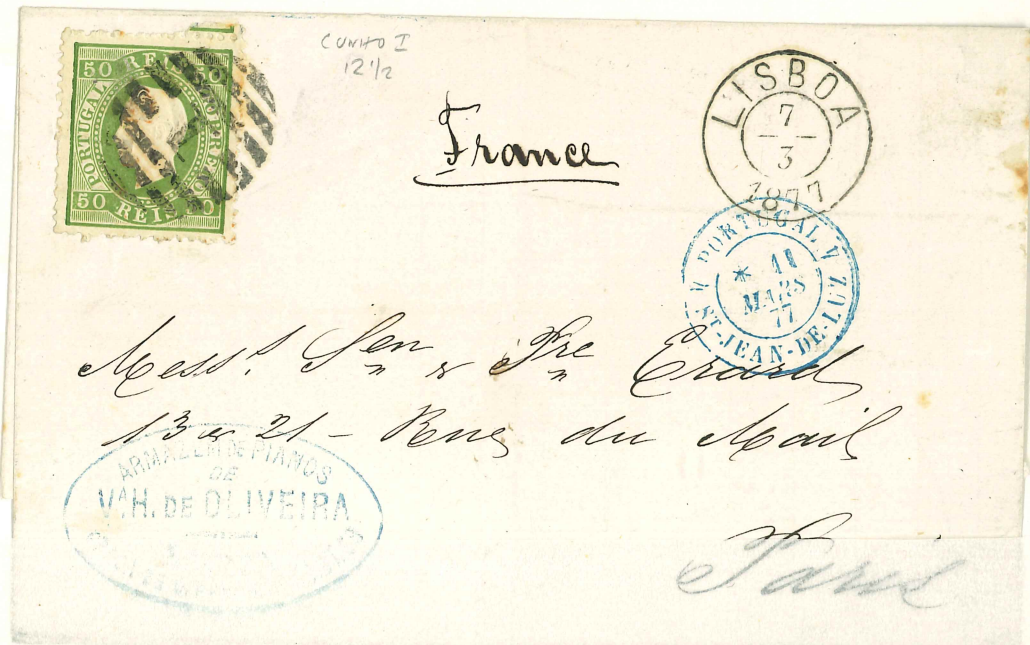 50 REIS 50
PORTUGAL
CORREIO
50 REIS 50
CUNHO I
12 1/2
France
LISBOA
7
3
1877
PORTUGAL
* 11
MARS
77
ST-JEAN-DE-LUZ
Mess.s Sen & Fre Erard
13 & 21 - Rue du Mail
Paris
ARMAZEM DE PIANOS
DE
V.A H. DE OLIVEIRA